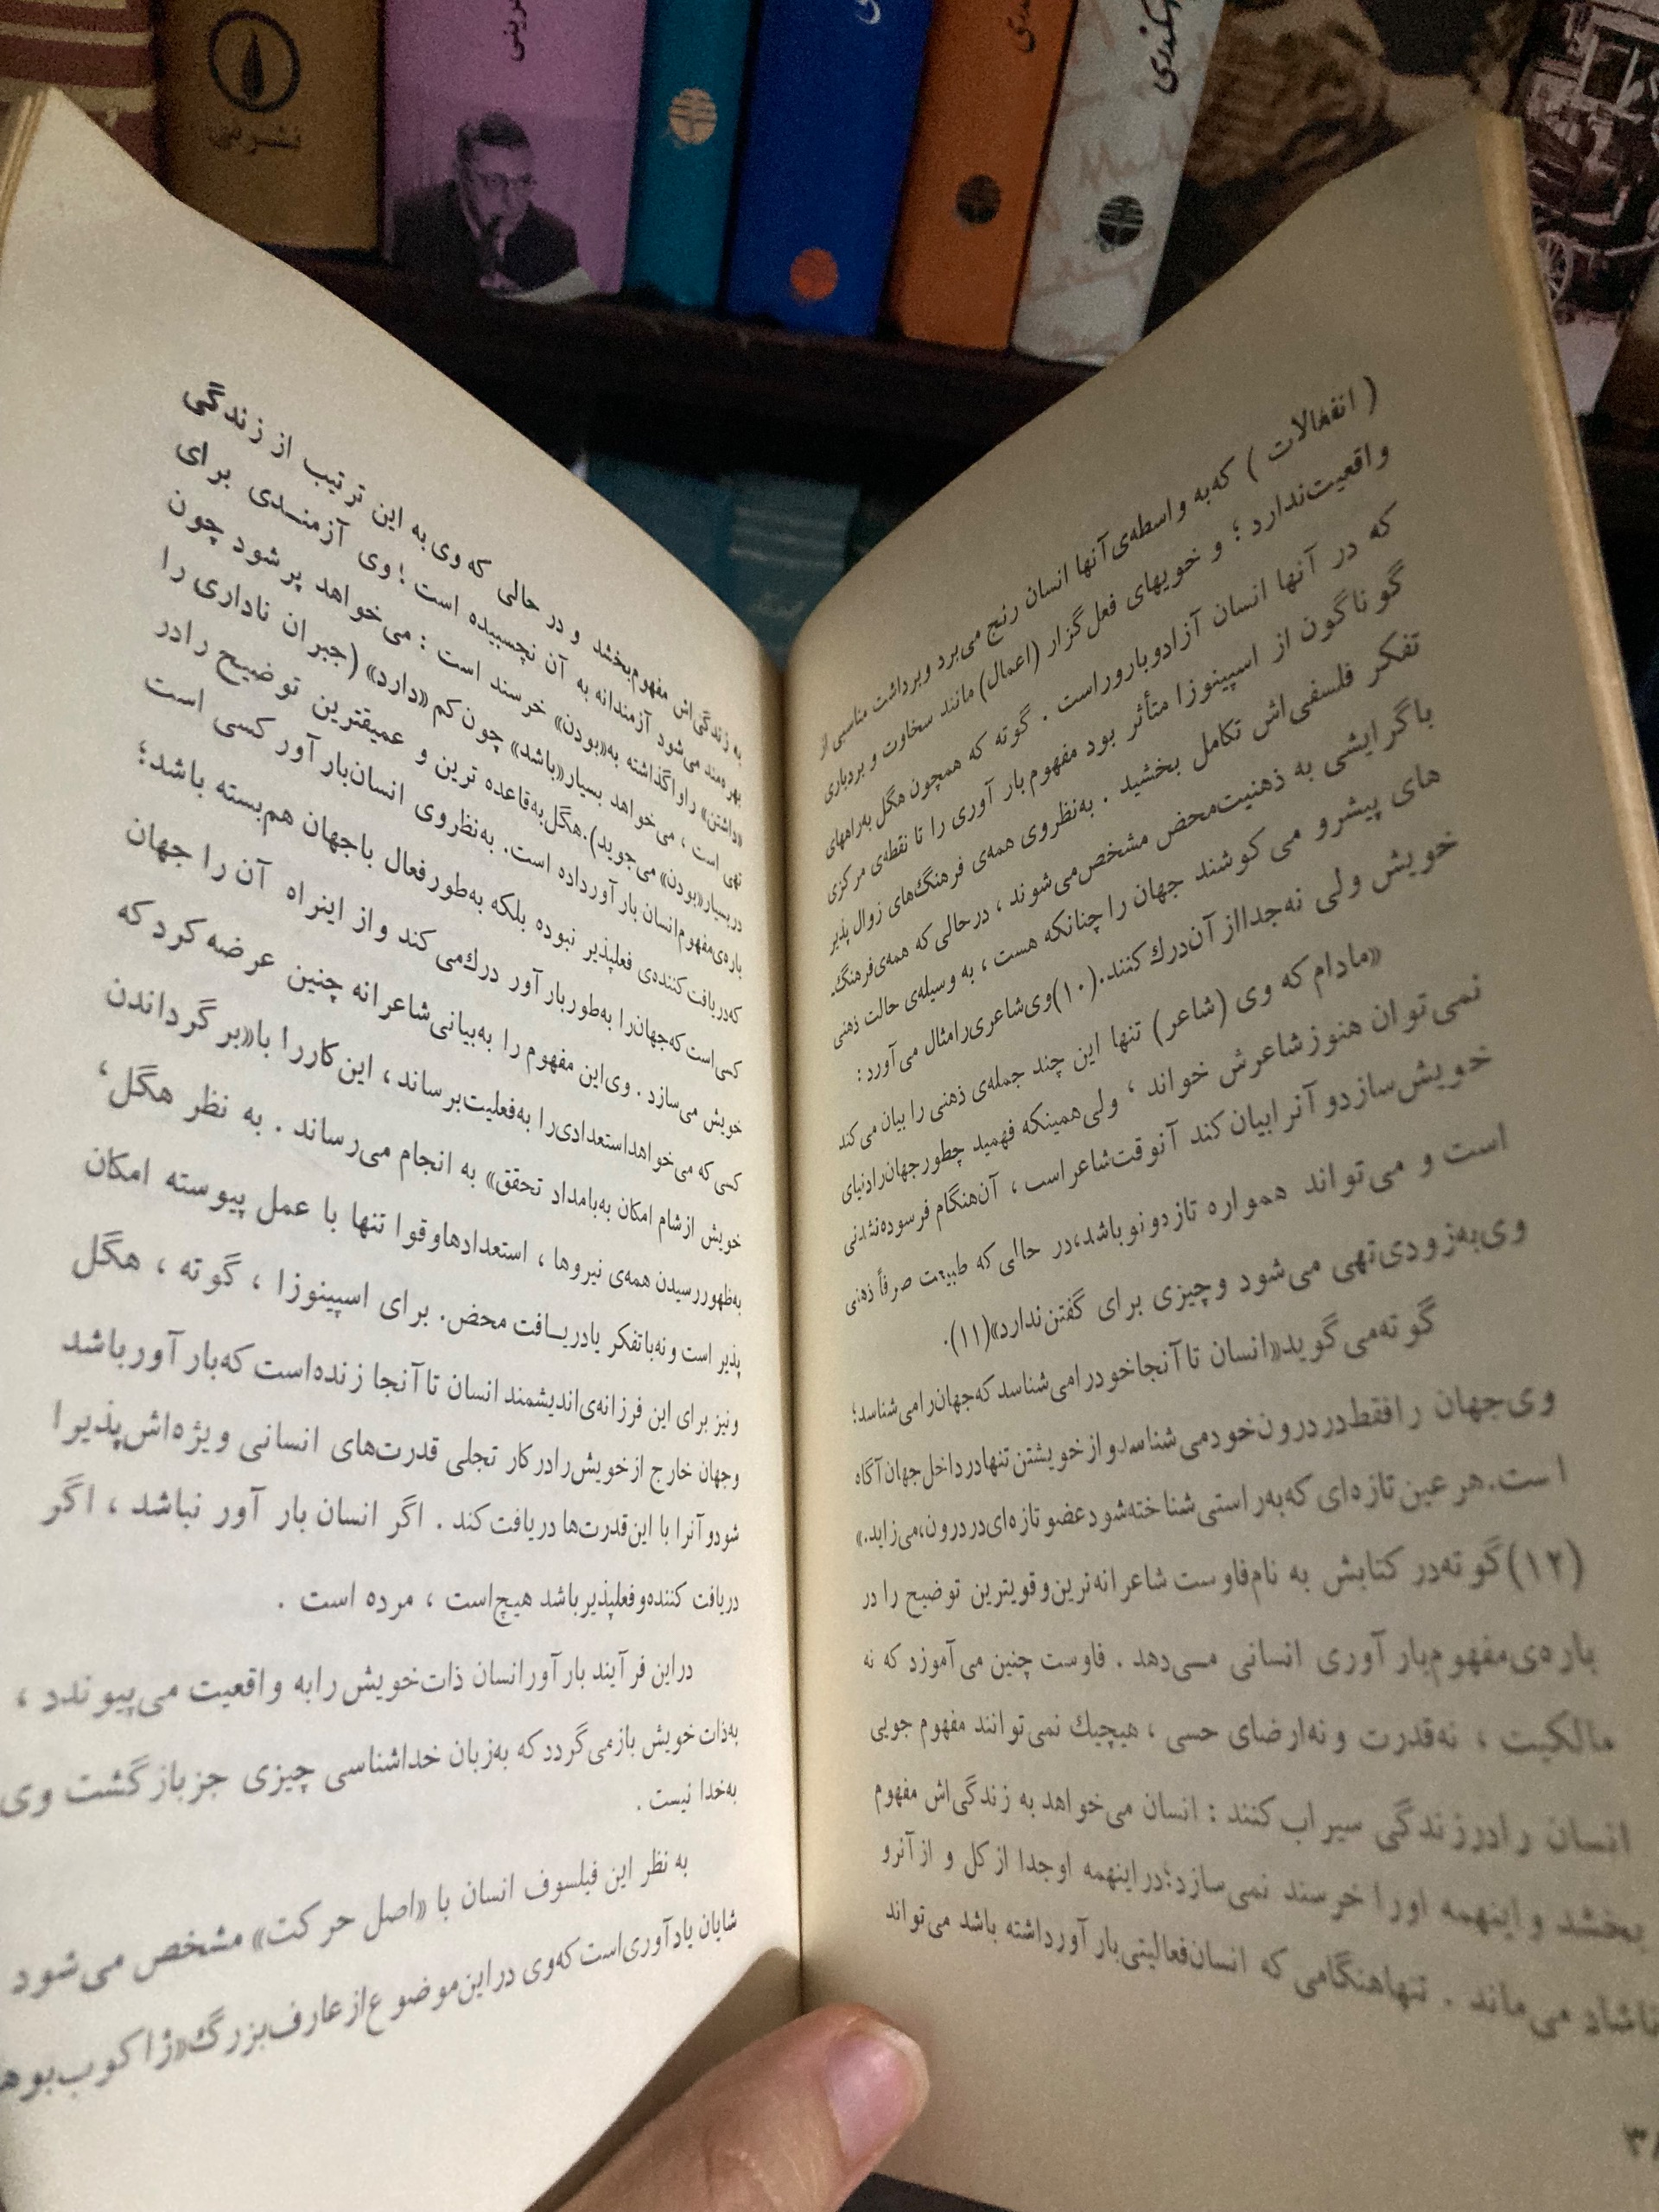 نشر نی
( انفعالات ) که به واسطه‌ی آنها انسان رنج می‌برد و برداشت مناسبی از
واقعیت ندارد ؛ و خویهای فعل‌گزار (اعمال) مانند سخاوت و بردباری
که در آنها انسان آزاد و بارور است . گوته که همچون هگل به راههای
گوناگون از اسپینوزا متأثر بود مفهوم بار آوری را تا نقطه‌ی مرکزی
تفکر فلسفی‌اش تکامل بخشید . به نظر وی همه‌ی فرهنگ‌های زوال پذیر
با گرایشی به ذهنیت محض مشخص می‌شوند ، در حالی که همه‌ی فرهنگ‌
های پیشرو می کوشند جهان را چنانکه هست ، به وسیله‌ی حالت ذهنی
خویش ولی نه جدا از آن درك کنند.(۱۰) وی شاعری را مثال می آورد :
«مادام که وی (شاعر) تنها این چند جمله‌ی ذهنی را بیان می کند
نمی توان هنوز شاعرش خواند ، ولی همینکه فهمید چطور جهان را دنیای
خویش سازد و آنرا بیان کند آنوقت شاعر است ، آن هنگام فرسوده نشدنی
است و می تواند همواره تازه و نو باشد، در حالی که طبیعت صرفاً ذهنی
وی به زودی تهی می شود و چیزی برای گفتن ندارد»(۱۱).
گوته می گوید «انسان تا آنجا خود را می شناسد که جهان را می شناسد؛
وی جهان را فقط در درون خود می شناسد و از خویشتن تنها در داخل جهان آگاه
است. هر عین تازه‌ای که به راستی شناخته شود عضو تازه‌ای در درون، می زاید.»
(۱۲) گوته در کتابش به نام فاوست شاعرانه ترین و قویترین توضیح را در
باره‌ی مفهوم بار آوری انسانی مــی دهد . فاوست چنین می آموزد که نه
مالکیت ، نه قدرت و نه ارضای حسی ، هیچیك نمی توانند مفهوم جویی
انسان را در زندگی سیراب کنند : انسان می خواهد به زندگی اش مفهوم
بخشد و اینهمه او را خرسند نمی سازد؛ در اینهمه او جدا از کل و از آنرو
ناشاد می ماند . تنها هنگامی که انسان فعالیتی بار آور داشته باشد می تواند
به زندگی‌اش مفهوم بخشد و در حالی که وی به این ترتیب از زندگی
بهره‌مند می‌شود آزمندانه به آن نچسبیده است ؛ وی آزمنــدی برای
«داشتن» را واگذاشته به «بودن» خرسند است : می خواهد پر شود چون
تهی است ، می خواهد بسیار «باشد» چون کم «دارد» (جبران ناداری را
در بسیار «بودن» می جوید). هگل به قاعده ترین و عمیقترین توضیح را در
باره‌ی مفهوم انسان بار آور داده است. به نظر وی انسان بار آور کسی است
که دریافت کننده‌ی فعلپذیر نبوده بلکه به طور فعال با جهان هم بسته باشد؛
کسی است که جهان را به طور بار آور درك می کند و از این راه آن را جهان
خویش می سازد . وی این مفهوم را به بیانی شاعرانه چنین عرضه کرد که
کسی که می خواهد استعدادی را به فعلیت برساند ، این کار را با «بر گرداندن
خویش از شام امکان به بامداد تحقق» به انجام می رساند . به نظر هگل ،
به ظهور رسیدن همه‌ی نیروها ، استعدادها و قوا تنها با عمل پیوسته امکان
پذیر است و نه با تفکر یا دریــافت محض. برای اسپینوزا ، گوته ، هگل
و نیز برای این فرزانه‌ی اندیشمند انسان تا آنجا زنده است که بار آور باشد
و جهان خارج از خویش را در کار تجلی قدرت‌های انسانی ویژه‌اش پذیرا
شود و آنرا با این قدرت‌ها دریافت کند . اگر انسان بار آور نباشد ، اگر
دریافت کننده و فعلپذیر باشد هیچ است ، مرده است .
در این فرآیند بار آور انسان ذات خویش را به واقعیت می پیوندد ،
به ذات خویش باز می گردد که به زبان خداشناسی چیزی جز باز گشت وی
به خدا نیست .
به نظر این فیلسوف انسان با «اصل حرکت» مشخص می شود
شایان یاد آوری است که وی در این موضوع از عارف بزرگ «ژاکوب بوهـ